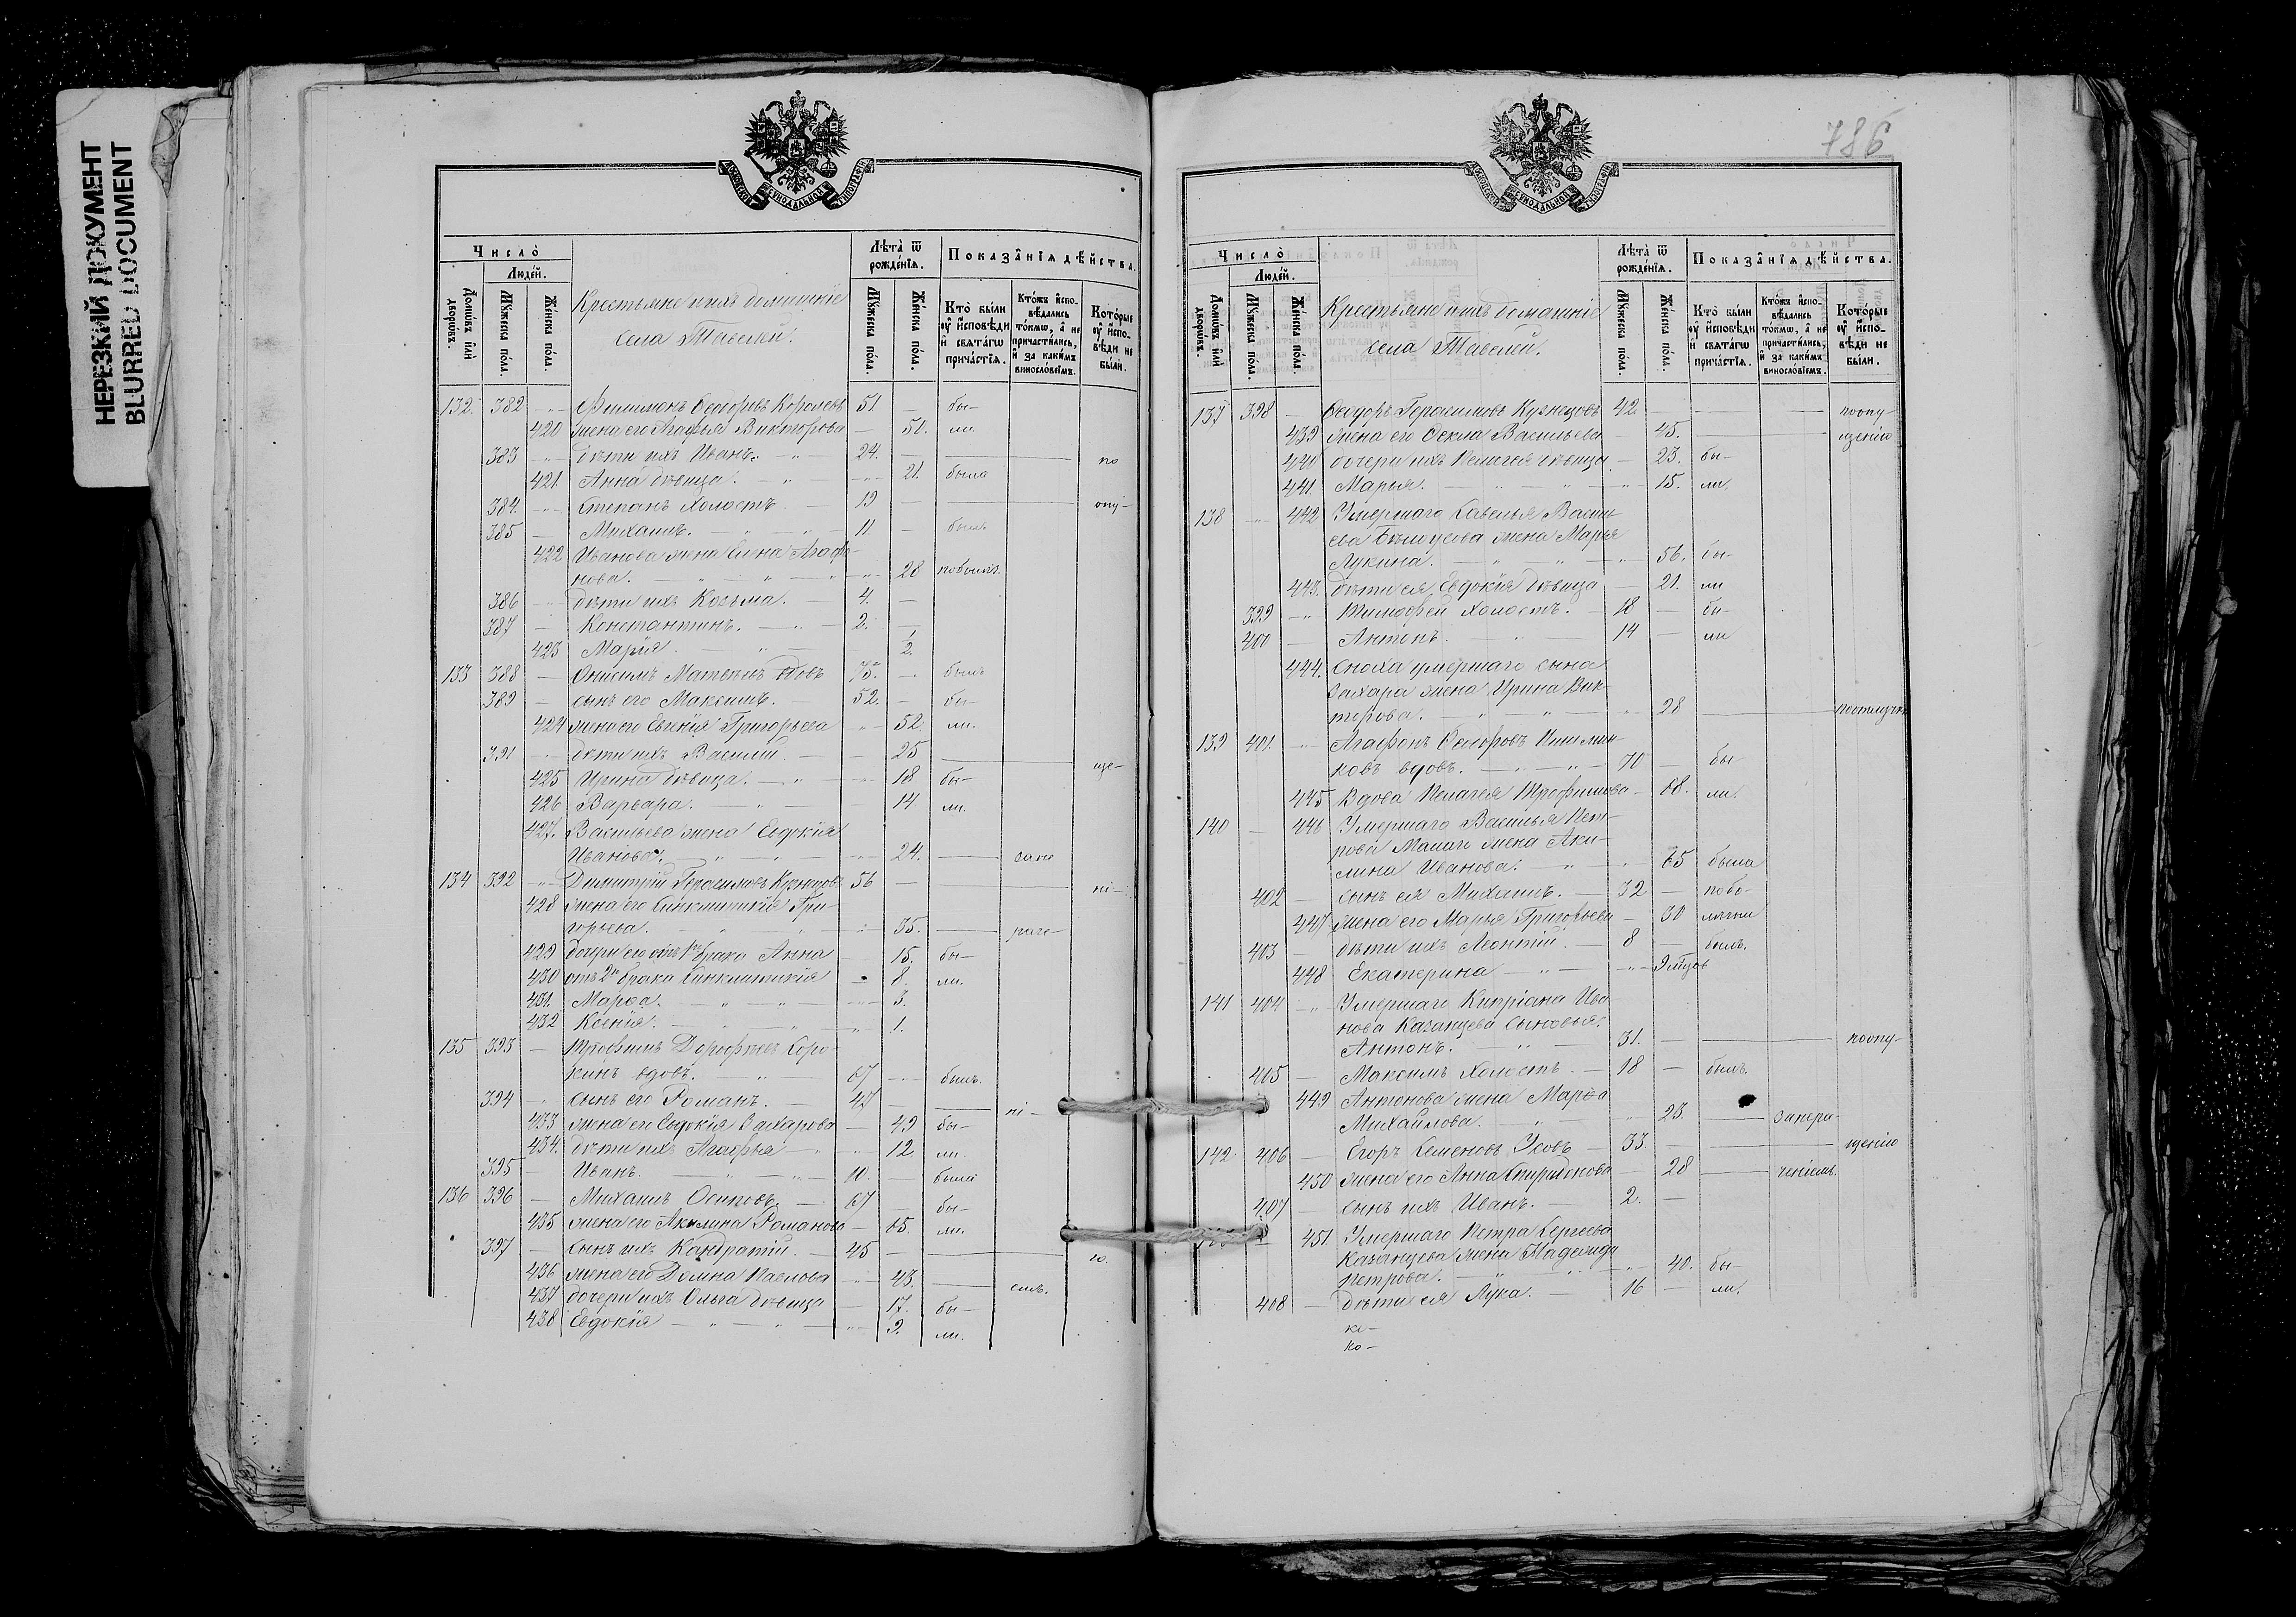 НЕРЕЗКИЙ ДОКУМЕНТ
BLURRED DOCUMENT
МОСКОВСКОЙ СѴНОДАЛЬНОЙ ТИПОГРАФІИ
Число̀
Люде́й.
Домѡ́въ и҆лѝ дворѡ́въ.
Мꙋ́жеска по́ла.
Же́нска по́ла.
Крестьяне и ихъ домашніе
села Тавелей.
Лѣ́та ѿ рожде́нїѧ.
Мꙋ́жеска по́ла.
Же́нска по́ла.
Показа̑нїѧ дѣ́йства.
Кто̀ бы́ли оу҆ и҆сповѣ́ди и҆ свѧта́гѡ прича́стїѧ.
Кто́жъ и҆сповѣ́дались то́кмѡ, а҆ не причасти́лись, и҆ за каки́мъ винослові́емъ.
Кото́рые оу҆ и҆сповѣ́ди не бы́ли.
132. 382 Филимонъ Ѳедоровъ Королевъ 51 — бы-
420 жена его Агафья Викторова — 51. ли.
383 дѣти ихъ Иванъ. 24. — по
421. Анна дѣвица. 21. была
384. Степанъ холостъ. 19 — опу-
385 Михаилъ. 11. — былъ
422 Иванова жена Агафо-
нова. 28 по болѣз.
386 дѣти ихъ Козьма. 4. —
387 Константинъ. 2. —
423 Марія. 2.
133 388 Онисимъ вдовъ 75. — былъ
389 сынъ его Максимъ. 52. — бы-
424 жена его Евгенія Григорьева 52. ли.
391 дѣти ихъ Василій. — 25 — ще-
425 Ирина дѣвица. 18 бы-
426 Варвара. 14 ли.
427. Васильева жена Евдокія
Иванова. 24. — запе
134 392 Димитрій Герасимовъ Кузнецовъ 56 — ні-
428 жена его Синклитикія Гри-
горьева. 35. — раче-
429 дочери его отъ 1го брака Анна — 15. бы-
430 отъ 2го брака Синклитикія 8. ли.
431. Марѳа. 3.
432 Ксенія. 1.
135 393 — Трофимъ Дорофеевъ Соро-
кинъ вдовъ. 67 былъ.
394 сынъ его Романъ. — 47 — ні-
433 жена его Евдокія Захарова — 49 бы-
434. дѣти ихъ Агафья 12. ли.
395 Иванъ. 10. — былъ
136 396 — Михаилъ Осиповъ. — 67 — бы-
435 жена его Акилина Романова — 65. ли.
397 — сынъ ихъ Кандратій. — 45 — ю.
436 жена его Домна Павлова 43. — емъ.
437 дочери ихъ Ольга дѣвица — 17. бы-
438 Евдокія 9. ли.
786
Число̀
Люде́й.
Домѡ́въ и҆лѝ дворѡ́въ.
Мꙋ́жеска по́ла.
Же́нска по́ла.
Крестьяне и ихъ домашніе
села Тавелей.
Лѣ́та ѿ рожде́нїѧ.
Мꙋ́жеска по́ла.
Же́нска по́ла.
Показа̑нїѧ дѣ́йства.
Кто̀ бы́ли оу҆ и҆сповѣ́ди и҆ свѧта́гѡ прича́стїѧ.
Кто́жъ и҆сповѣ́дались то́кмѡ, а҆ не причасти́лись, и҆ за каки́мъ винослові́емъ.
Кото́рые оу҆ и҆сповѣ́ди не бы́ли.
137 398 — Ѳедоръ Герасимовъ Кузнецовъ 42. — по опу-
439 жена его Ѳекла Васильева — 45. — щенію
440 дочери ихъ Пелагея дѣвица — 23. бы-
441. Марья. 15. ли.
138 442 Умершаго Савелья Васи-
ева жена Марья
Лукина. 56. бы-
443. дѣти ея Евдокія дѣвица — 21. ли
399 Тимофей холостъ. — 18 — бы-
400 — Антонъ. 14 — ли
444. Сноха умершаго сына
Захара жена Ирина Вик-
торова. 28 — по отлучкѣ
139 401. Агафонъ Ѳедоровъ
ковъ вдовъ. 70 — бы-
445 Вдова Пелагея Трофимова — 68. ли.
140 — 446 Умершаго Василья Пет-
рова жена Аки-
лина Иванова. 65 была
402 — сынъ ея Михаилъ. — 32 — по бо-
447 жена его Марья Григорьева — 30 лѣзни
403 — дѣти ихъ Леонтій. — 8 — былъ.
448 Екатерина
141 404 Умершаго Кипріана Ива
нова Казанцева сыновья:
Антонъ. 31. — по опу-
405 — Максимъ холостъ. — 18 — былъ.
449 Антонова жена Марѳа
Михайлова. 23. — за пера-
142 406 — Егоръ Семеновъ Усовъ — 33 — щенію
450 жена его Анна Спиридонова — 28 — ченіемъ.
407 — сынъ ихъ Иванъ. — 2. —
451 Умершаго Петра Сергеева
Казанцева жена Надежда
Петрова. 40. бы-
408 — дѣти ея Лука. — 16 — ли.
ко-